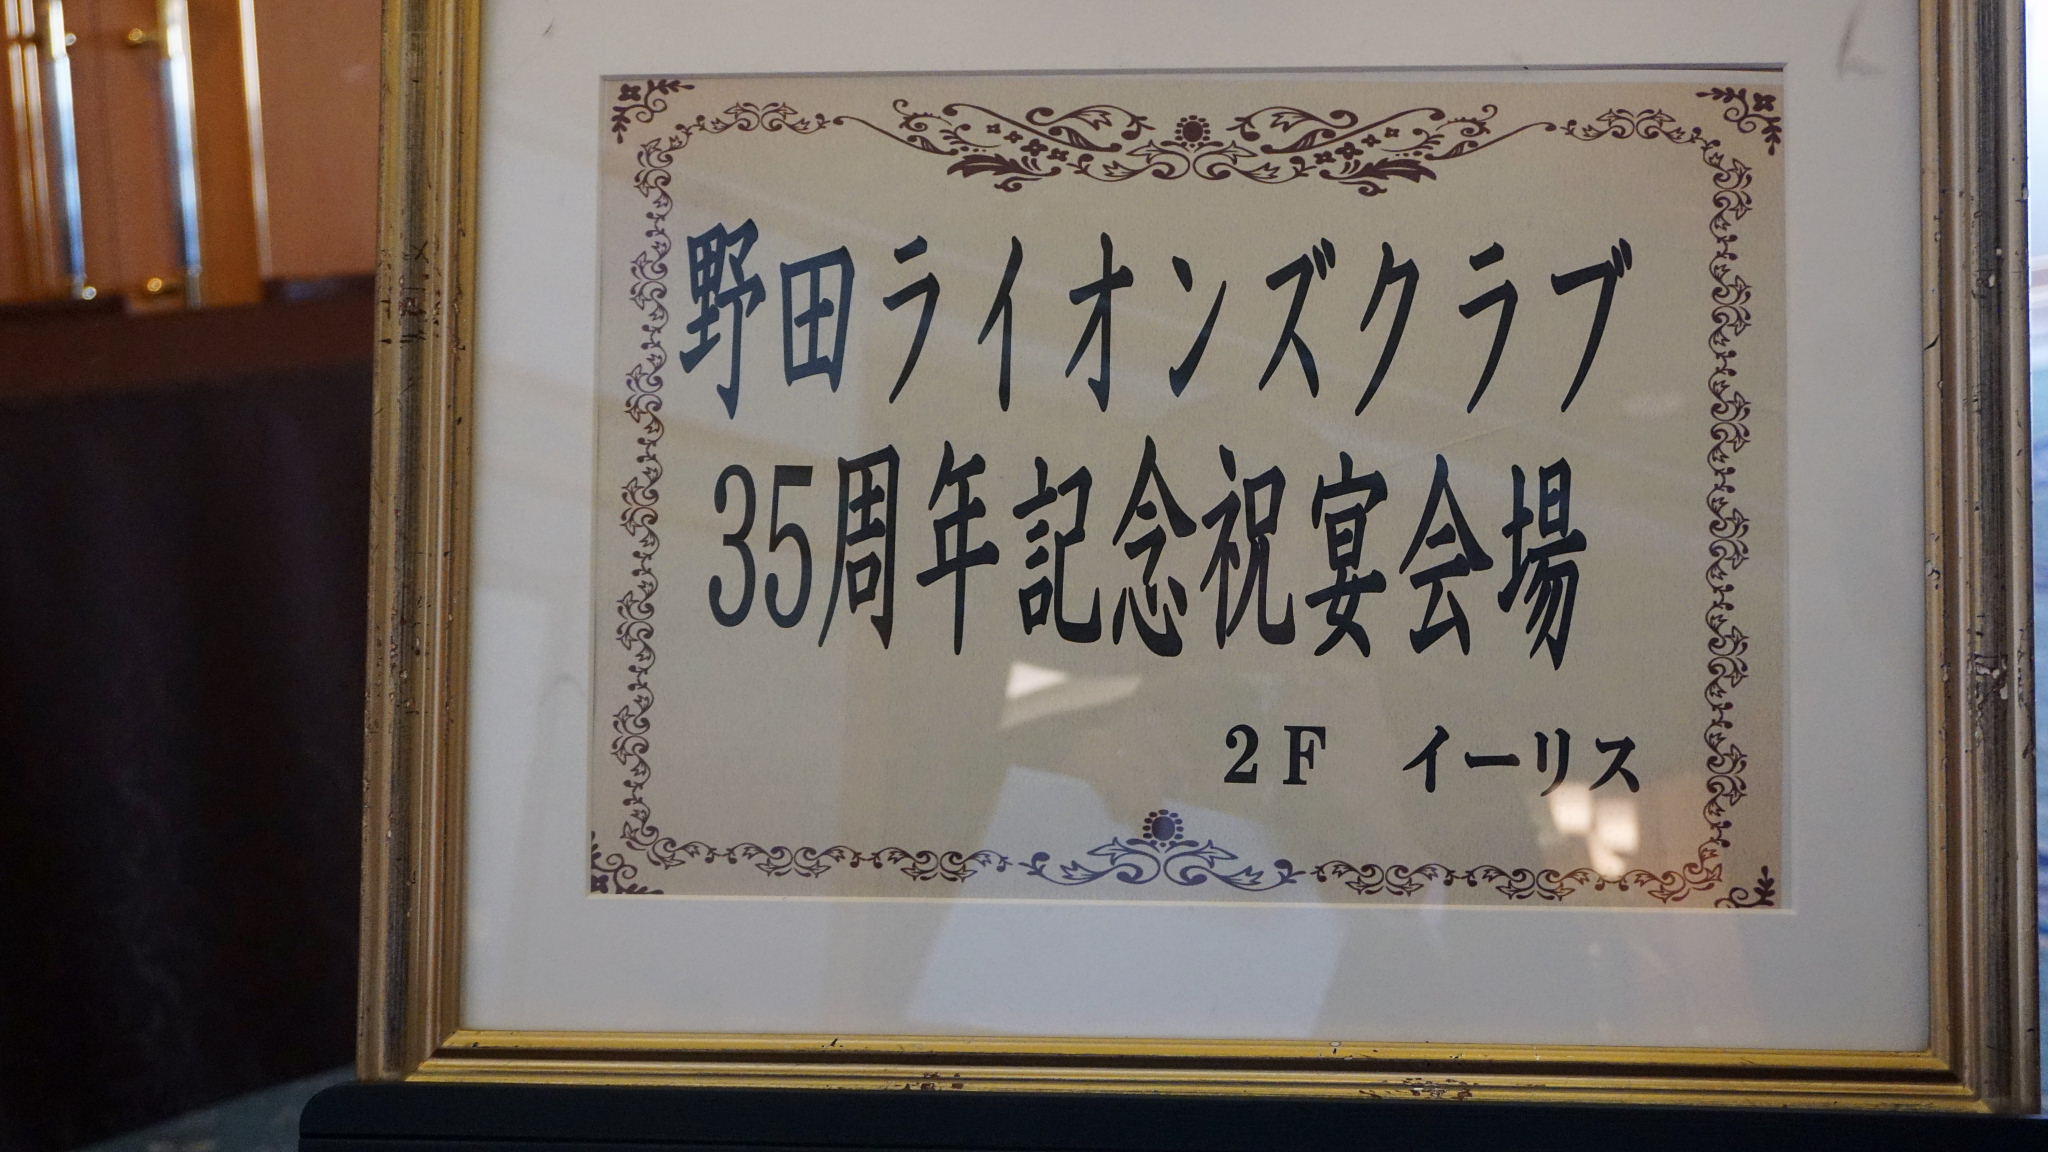 野田ライオンズクラブ
35周年記念祝宴会場
２Ｆ　イーリス